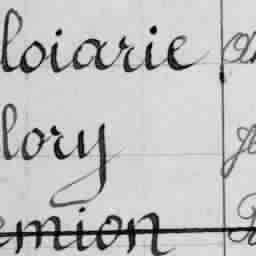 loiarie
lory
emion